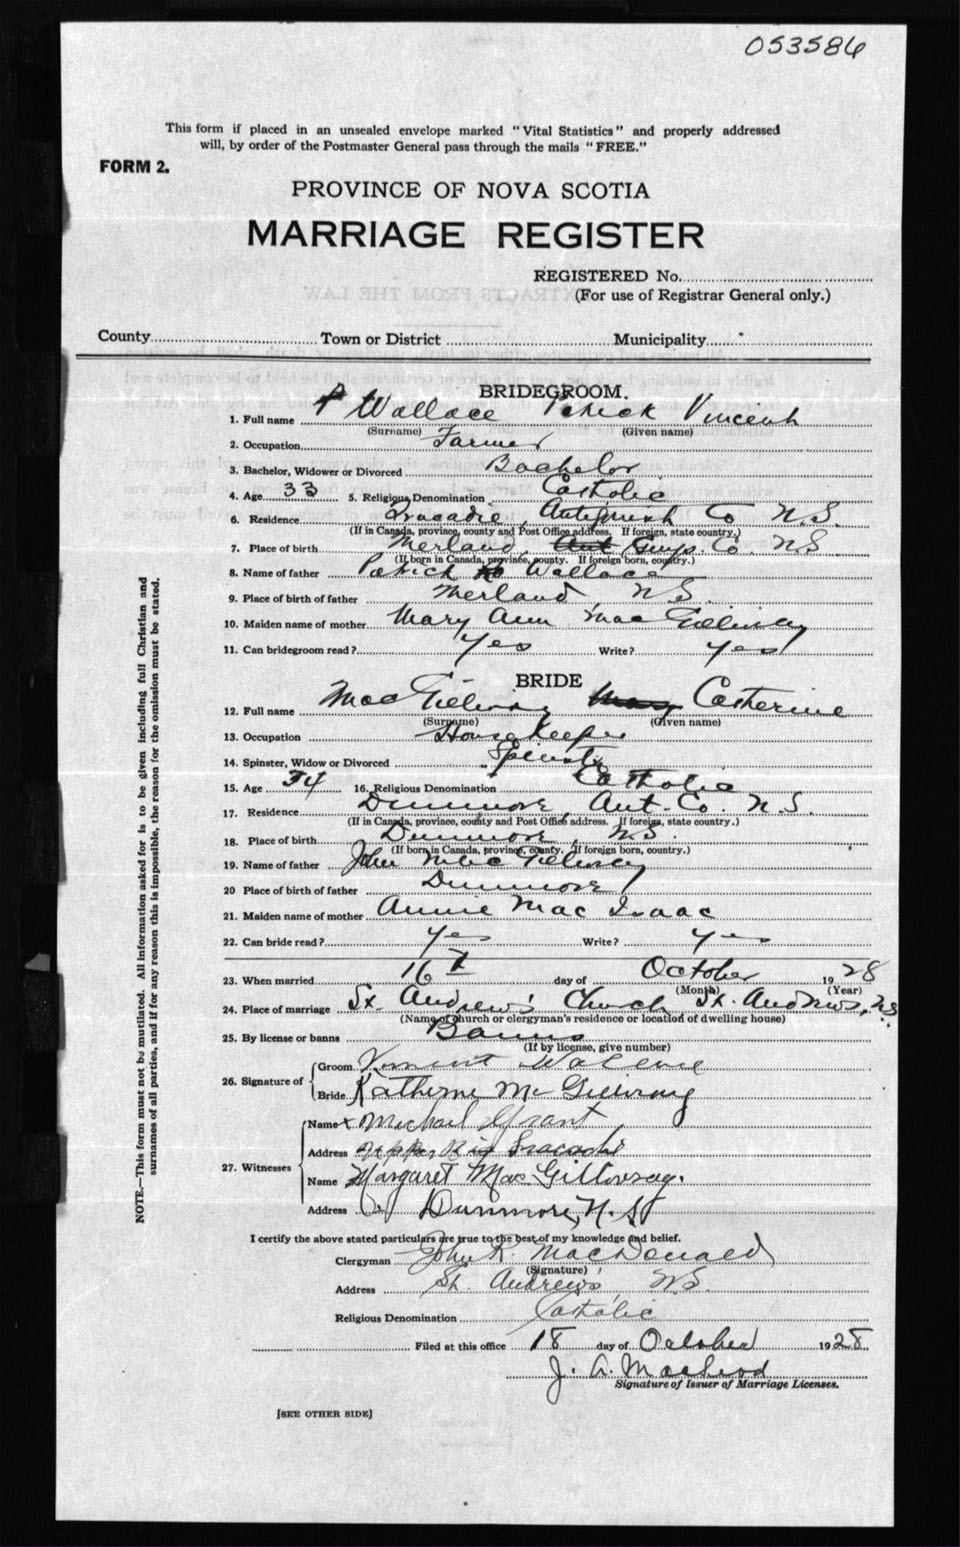 053586
This form if placed in an unsealed envelope marked "Vital Statistics" and properly addressed
will, by order of the Postmaster General pass through the mails "FREE."
FORM 2.
PROVINCE OF NOVA SCOTIA
MARRIAGE REGISTER
REGISTERED No.
(For use of Registrar General only.)
County Town or District Municipality
BRIDEGROOM.
1. Full name Wallace Patrick Vincent
(Surname) (Given name)
2. Occupation Farmer
3. Bachelor, Widower or Divorced Bachelor
4. Age 33 5. Religious Denomination Catholic
6. Residence Antigonish Co N.S.
(If in Canada, province, county and Post Office address. If foreign, state country.)
7. Place of birth Merland Co. N.S.
(If born in Canada, province, county. If foreign born, country.)
8. Name of father Patrick Wallace
9. Place of birth of father Merland N.S.
10. Maiden name of mother Mary Ann MacGillivray
11. Can bridegroom read? Yes Write? yes
BRIDE
12. Full name MacGillivray Catherine
(Surname) (Given name)
13. Occupation Housekeeper
14. Spinster, Widow or Divorced Spinster
15. Age 34 16. Religious Denomination Catholic
17. Residence Dunmore, Ant. Co. N.S.
(If in Canada, province, county and Post Office address. If foreign, state country.)
18. Place of birth Dunmore N.S.
(If born in Canada, province, county. If foreign born, country.)
19. Name of father John MacGillivray
20 Place of birth of father Dunmore
21. Maiden name of mother Annie Mac Isaac
22. Can bride read? Yes Write? Yes
23. When married 16th day of October 1928
(Month) (Year)
24. Place of marriage St. Andrew's Church St. Andrews, N.S.
(Name of church or clergyman's residence or location of dwelling house)
25. By license or banns Banns
(If by license, give number)
26. Signature of Groom Vincent Wallace
Bride Katherine McGillivray
27. Witnesses Name x Michael Grant
Address Upper Big Tracadie
Name Margaret MacGillivray.
Address Dunmore, N.S.
I certify the above stated particulars are true to the best of my knowledge and belief.
Clergyman John R. MacDonald
(Signature)
Address St. Andrews N.S.
Religious Denomination Catholic
Filed at this office 18 day of October 1928
J. A. MacLeod
Signature of Issuer of Marriage Licenses.
[SEE OTHER SIDE]
NOTE.—This form must not be mutilated. All information asked for is to be given including full Christian and
surnames of all parties, and if for any reason this is impossible, the reason for the omission must be stated.